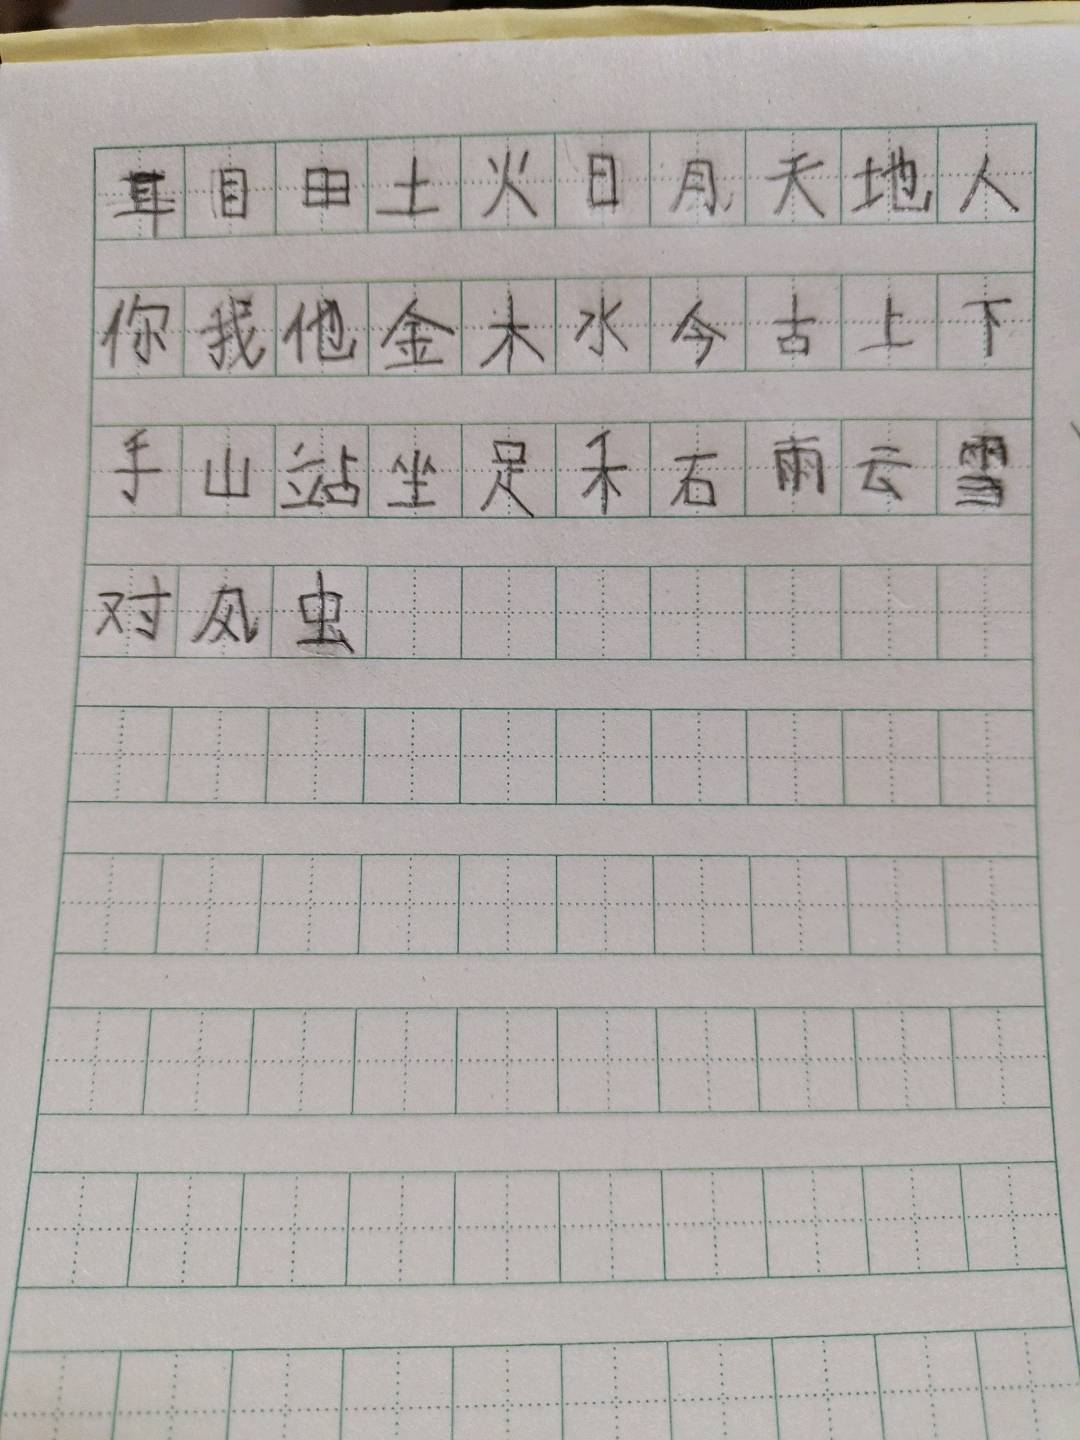 耳目田土火日月天地人
你我他金木水今古上下
手山站坐足禾石雨云雪
对风虫